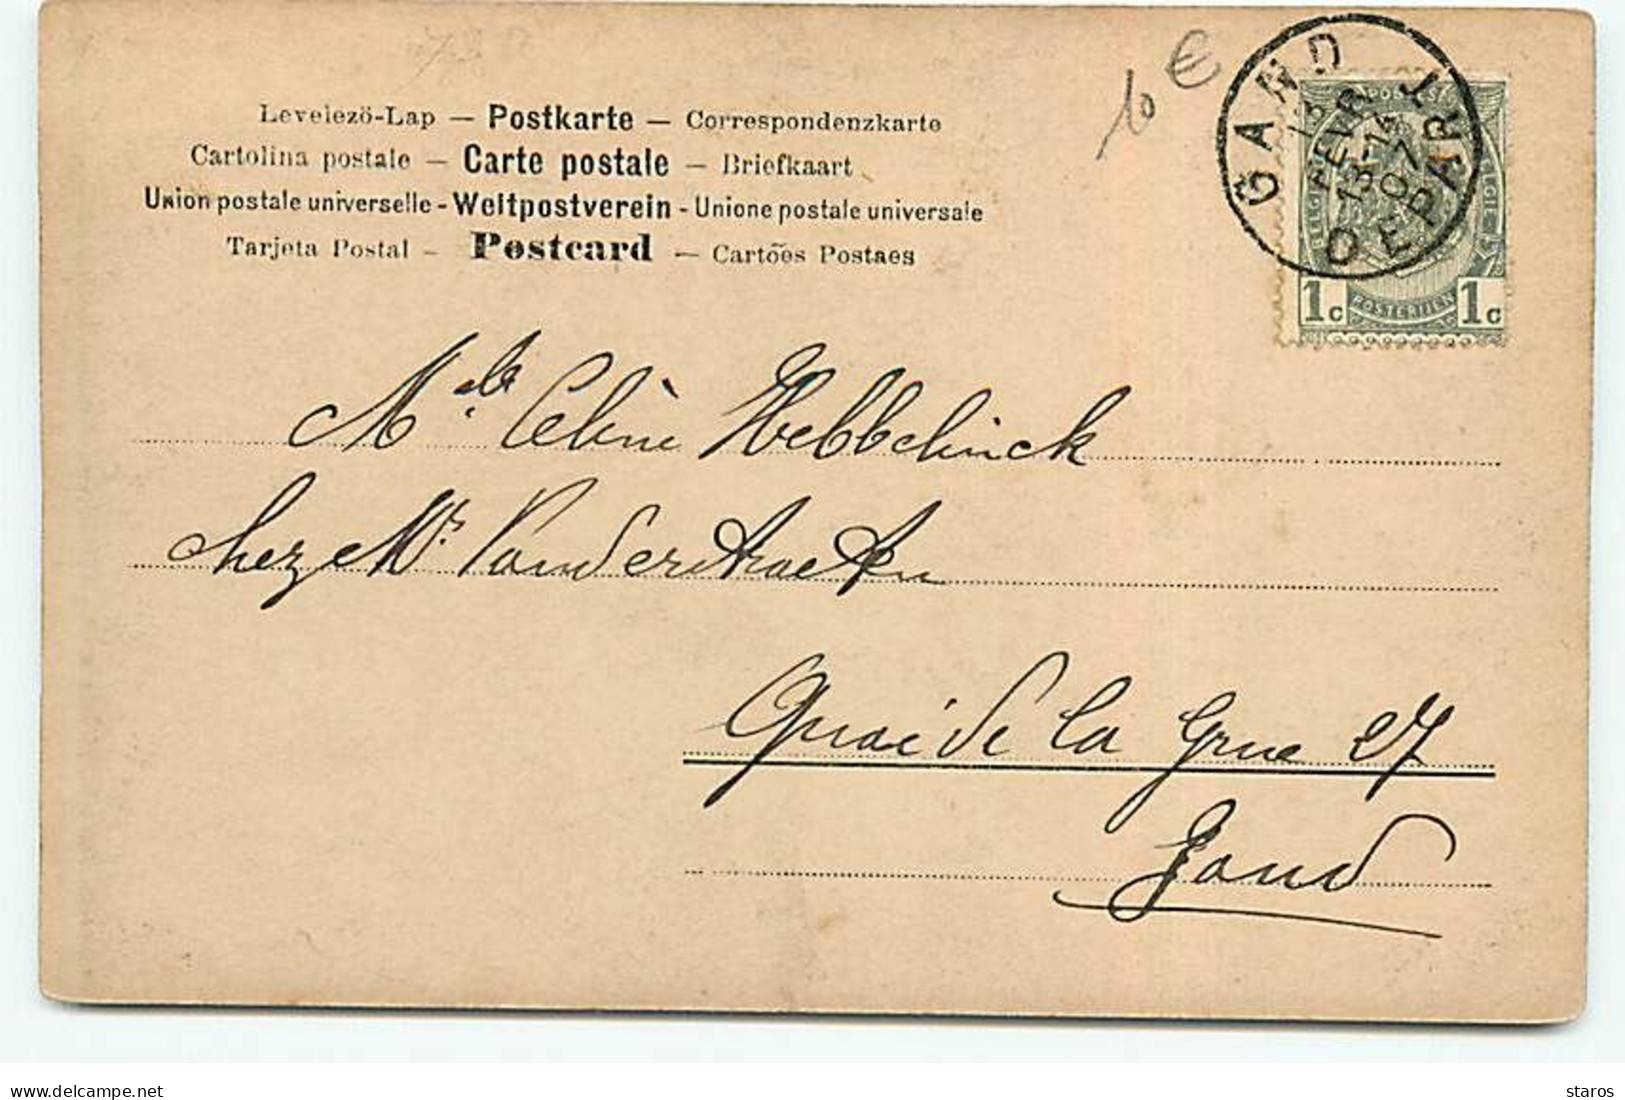 10 €
Levelezö-Lap — Postkarte — Correspondenzkarte
Cartolina postale — Carte postale — Briefkaart
Union postale universelle - Weltpostverein - Unione postale universale
Tarjeta Postal — Postcard — Cartões Postaes
GAND
13 FEVR
13-14
07
DEPART
1c POSTERIJEN 1c
Melle Celine Hebbelinck
chez Mr. Vanderstraeten
Quai de la Grue 27
Gand
delcampe.net
staros